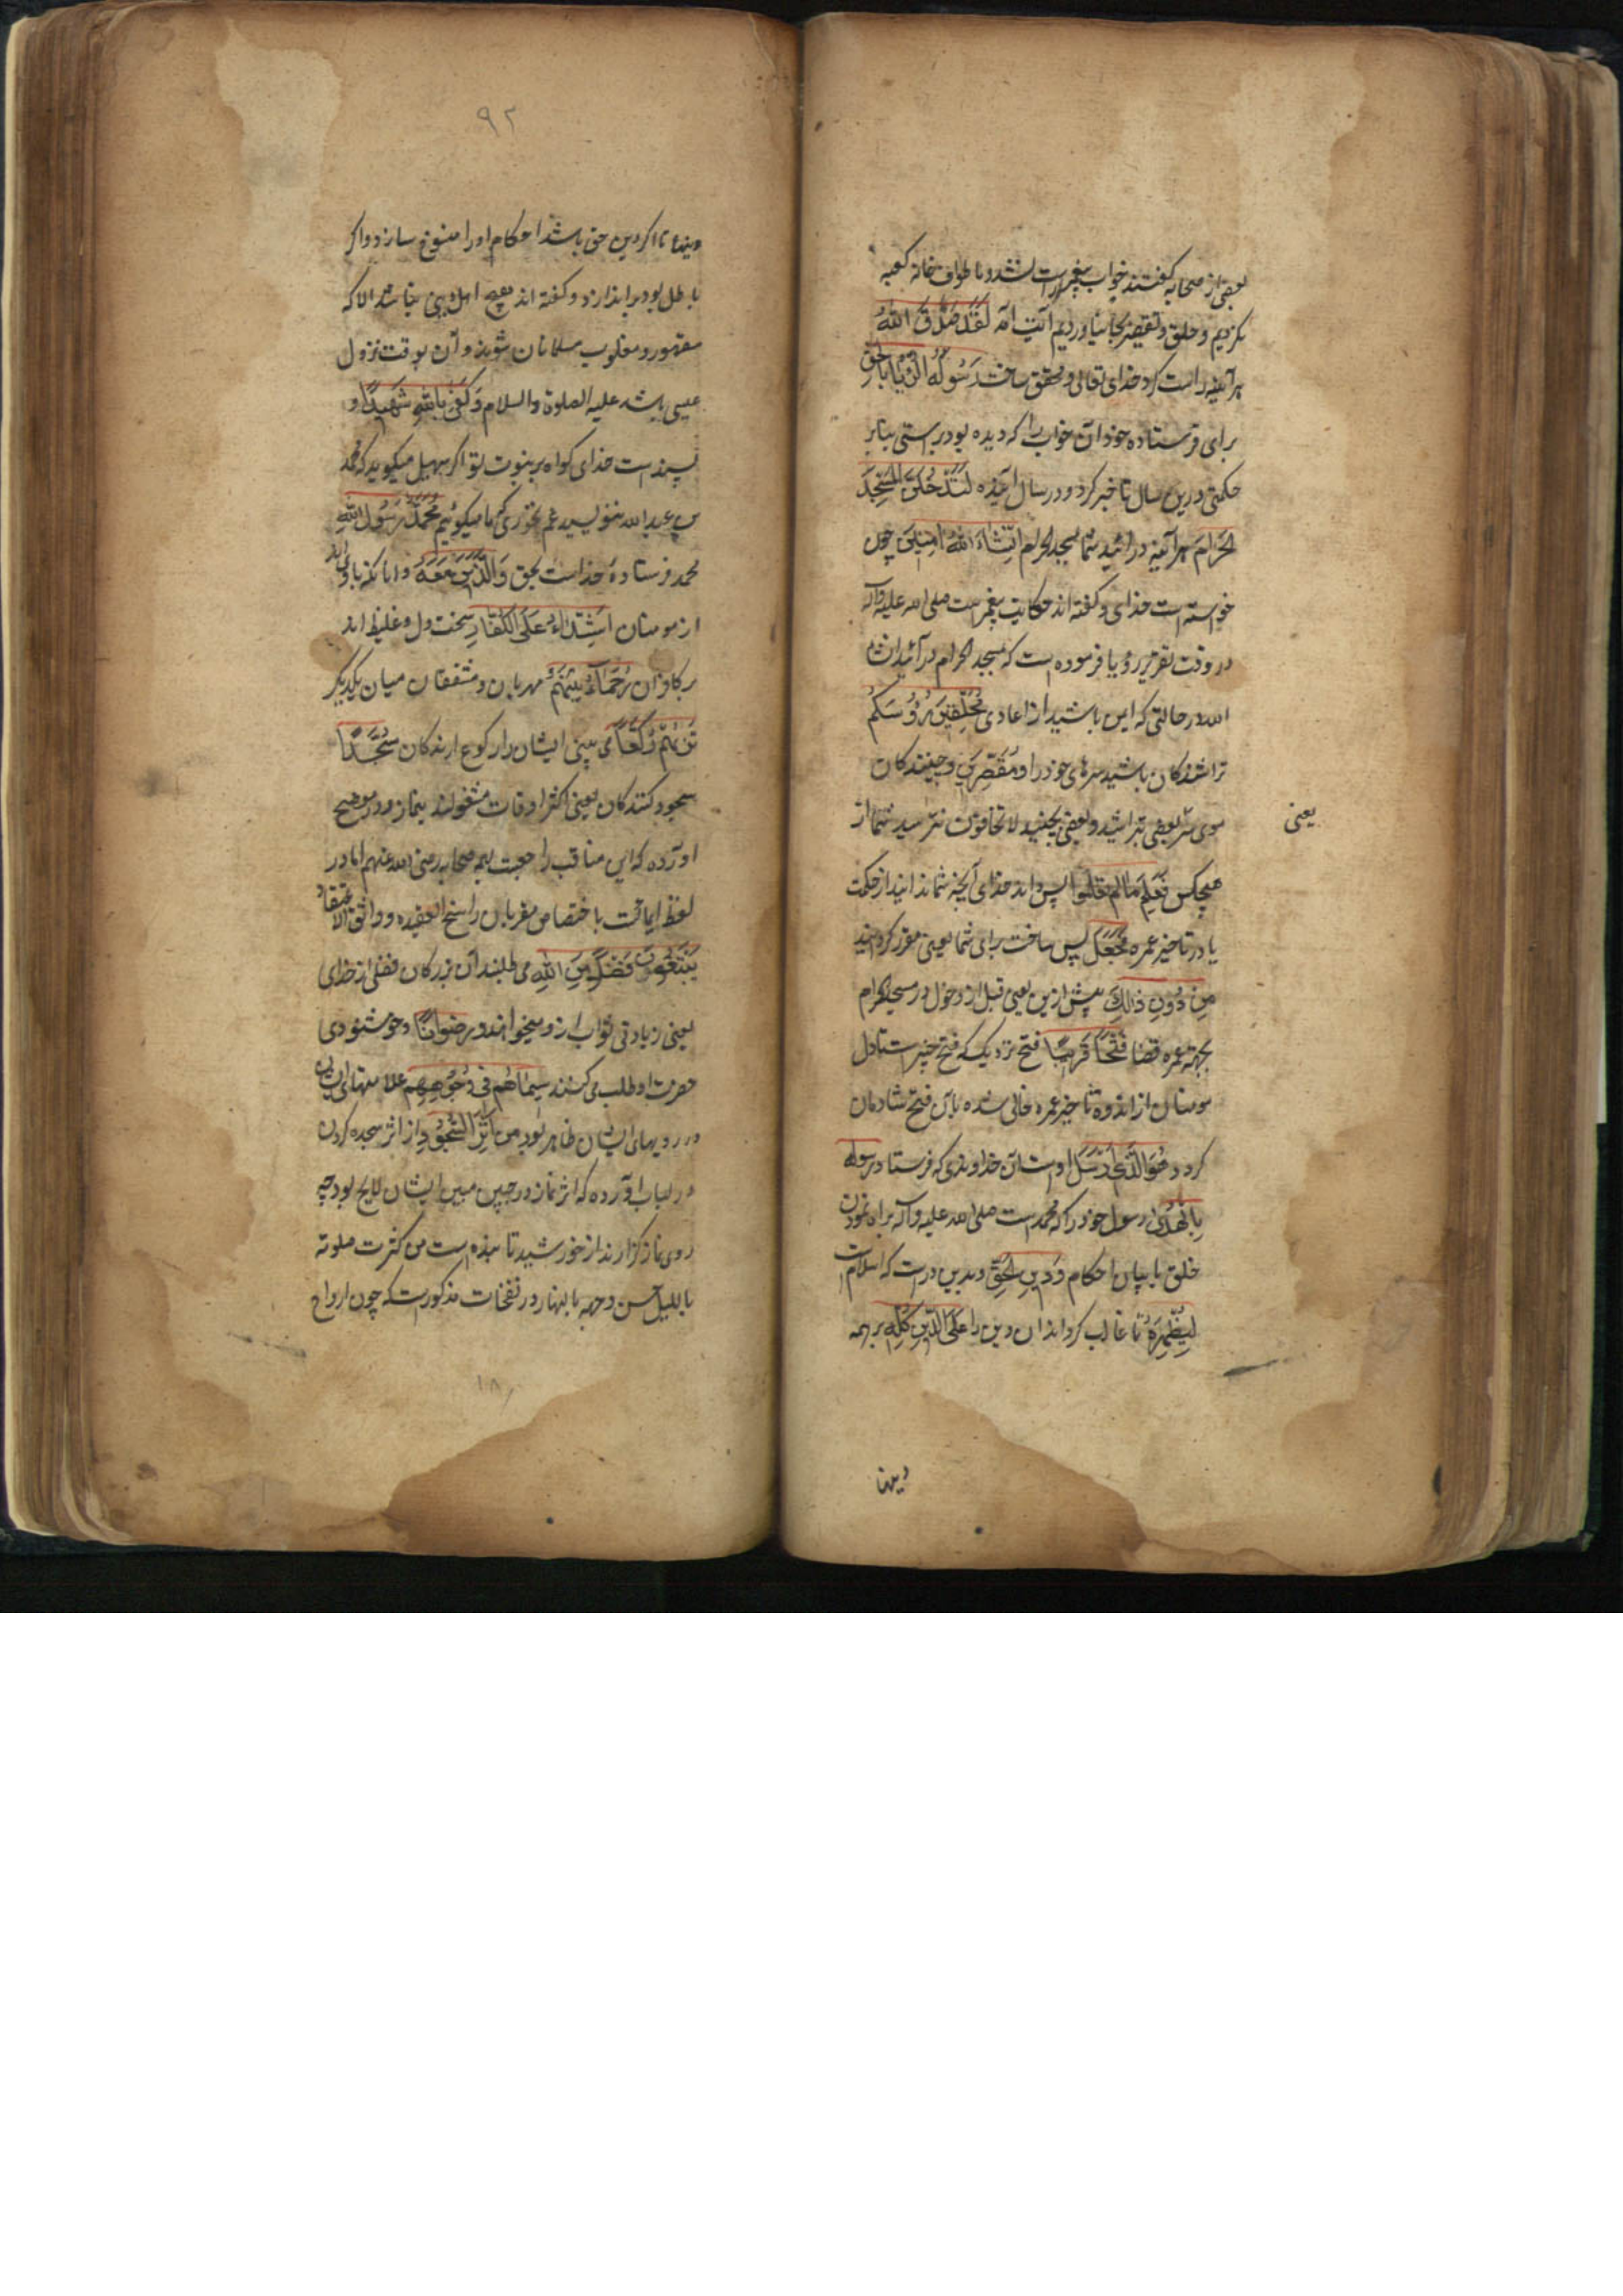 بعضی از صحابه گفتند خواب پیغمبر راست نشد و ما طواف خانه کعبه
نکردیم و حلق و تقصیر بجا نیاوردیم آیت آمد لَقَدْ صَدَقَ اللّٰهُ
هر آئینه راست کرد خدای تعالی و محقق ساخت رَسُولَهُ الرُّؤْیَا بِالْحَقِّ
برای فرستاده خود آن خواب را که دیده بود براستی بنابر
حکمتی درین سال تاخیر کرد و در سال آینده لَتَدْخُلُنَّ الْمَسْجِدَ
الْحَرَامَ هر آئینه در آئید شما بمسجد الحرام اِنْشَاءَ اللّٰهُ اٰمِنِیْنَ چون
خواسته است خدای و گفته اند حکایت پیغمبر است صلی الله علیه وآله
در وقت تقریر رؤیا فرموده است که بمسجد الحرام در آئید انشاء
الله در حالتی که ایمن باشید از اعادی مُحَلِّقِیْنَ رُؤُسَکُمْ
تراشندگان باشید سرهای خود را وَمُقَصِّرِیْنَ و چینندگان
موی سر بعضی بتراشید و بعضی بچینید لا تخافون نترسید شما از
یعنی
هیچکس فَعَلِمَ مَا لَمْ تَعْلَمُوا پس داند خدای آنچه شما ندانید از حکمت
یا در تاخیر عمره فَجَعَلَ پس ساخت برای شما یعنی مقرر گردانید
مِنْ دُوْنِ ذٰلِکَ پیش ازین یعنی قبل از دخول در مسجد الحرام
بجهة عمره قضا فَتْحًا قَرِیْبًا فتح نزدیک که فتح خیبر است تا دل
مومنان از اندوه تاخیر عمره خالی شده بآن فتح شادمان
گردد هُوَ الَّذِیْ اَرْسَلَ اوست آن خداوندی که فرستاد رسوله
بِالْهُدٰی رسول خود را که محمد است صلی الله علیه وآله براه نمودن
خلق با بیان احکام وَدِیْنِ الْحَقِّ و بدین درست که اسلام است
لِیُظْهِرَهُ تا غالب گرداند آن دین را عَلَی الدِّیْنِ کُلِّهِ بر همه
دینها
۹۲
دینها تا اگر دین حق باشد احکام او را منسوخ سازد و اگر
باطل بود براندازد و گفته اند هیچ اهل دینی نباشد الا که
مقهور و مغلوب مسلمانان شوند و آن بوقت نزول
عیسی باشد علیه الصلوة والسلام وَکَفٰی بِاللّٰهِ شَهِیْدًا و
بسند است خدای گواه بر نبوت تو اگر سهیل میگوید که محمد
بن عبدالله بنویسید غم نخوری که ما میگوئیم مُحَمَّدٌ رَسُوْلُ اللّٰهِ
محمد فرستادهٔ خداست بحق وَالَّذِیْنَ مَعَهُ و آنانکه با وی اند
از مومنان اَشِدَّاءُ عَلَی الْکُفَّارِ سخت دل و غلیظ اند
بر کافران رُحَمَاءُ بَیْنَهُمْ مهربان و مشفقان میان یکدیگر
تَرٰیهُمْ رُکَّعًا می بینی ایشان را رکوع آرندگان سُجَّدًا
سجود کنندگان یعنی اکثر اوقات مشغولند بنماز و در موضح
آورده که این مناقب را جهت همه صحابه رضی الله عنهم اما در
لفظ ایماقت با ختصاص مقربان راسخ العقیده و واثق الاعتقاد
یَبْتَغُوْنَ فَضْلًا مِنَ اللّٰهِ می طلبند آن بزرگان فضلی از خدای
یعنی زیادتی ثواب ازو میخواهند وَرِضْوَانًا و خوشنودی
حضرت او طلب می کنند سِیْمَاهُمْ فِیْ وُجُوْهِهِمْ علامتهای ایشان
در رویهای ایشان ظاهر بود مِنْ اَثَرِ السُّجُوْدِ از اثر سجده کردن
در لباب آورده که اثر نماز در جبین مبین ایشان لایح بود چه
روی نماز گزارند از خورشید تابنده است من کثرت صلوته
باللیل حسن وجهه بالنهار در نفخات مذکورست که چون ارواح